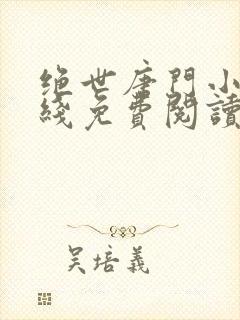 绝世唐門小
綫免費閱讀
吴培義